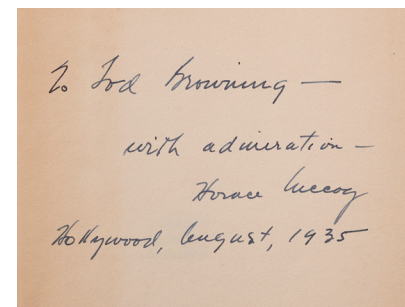 To Tod Browning —
with admiration —
Horace McCoy
Hollywood, August, 1935